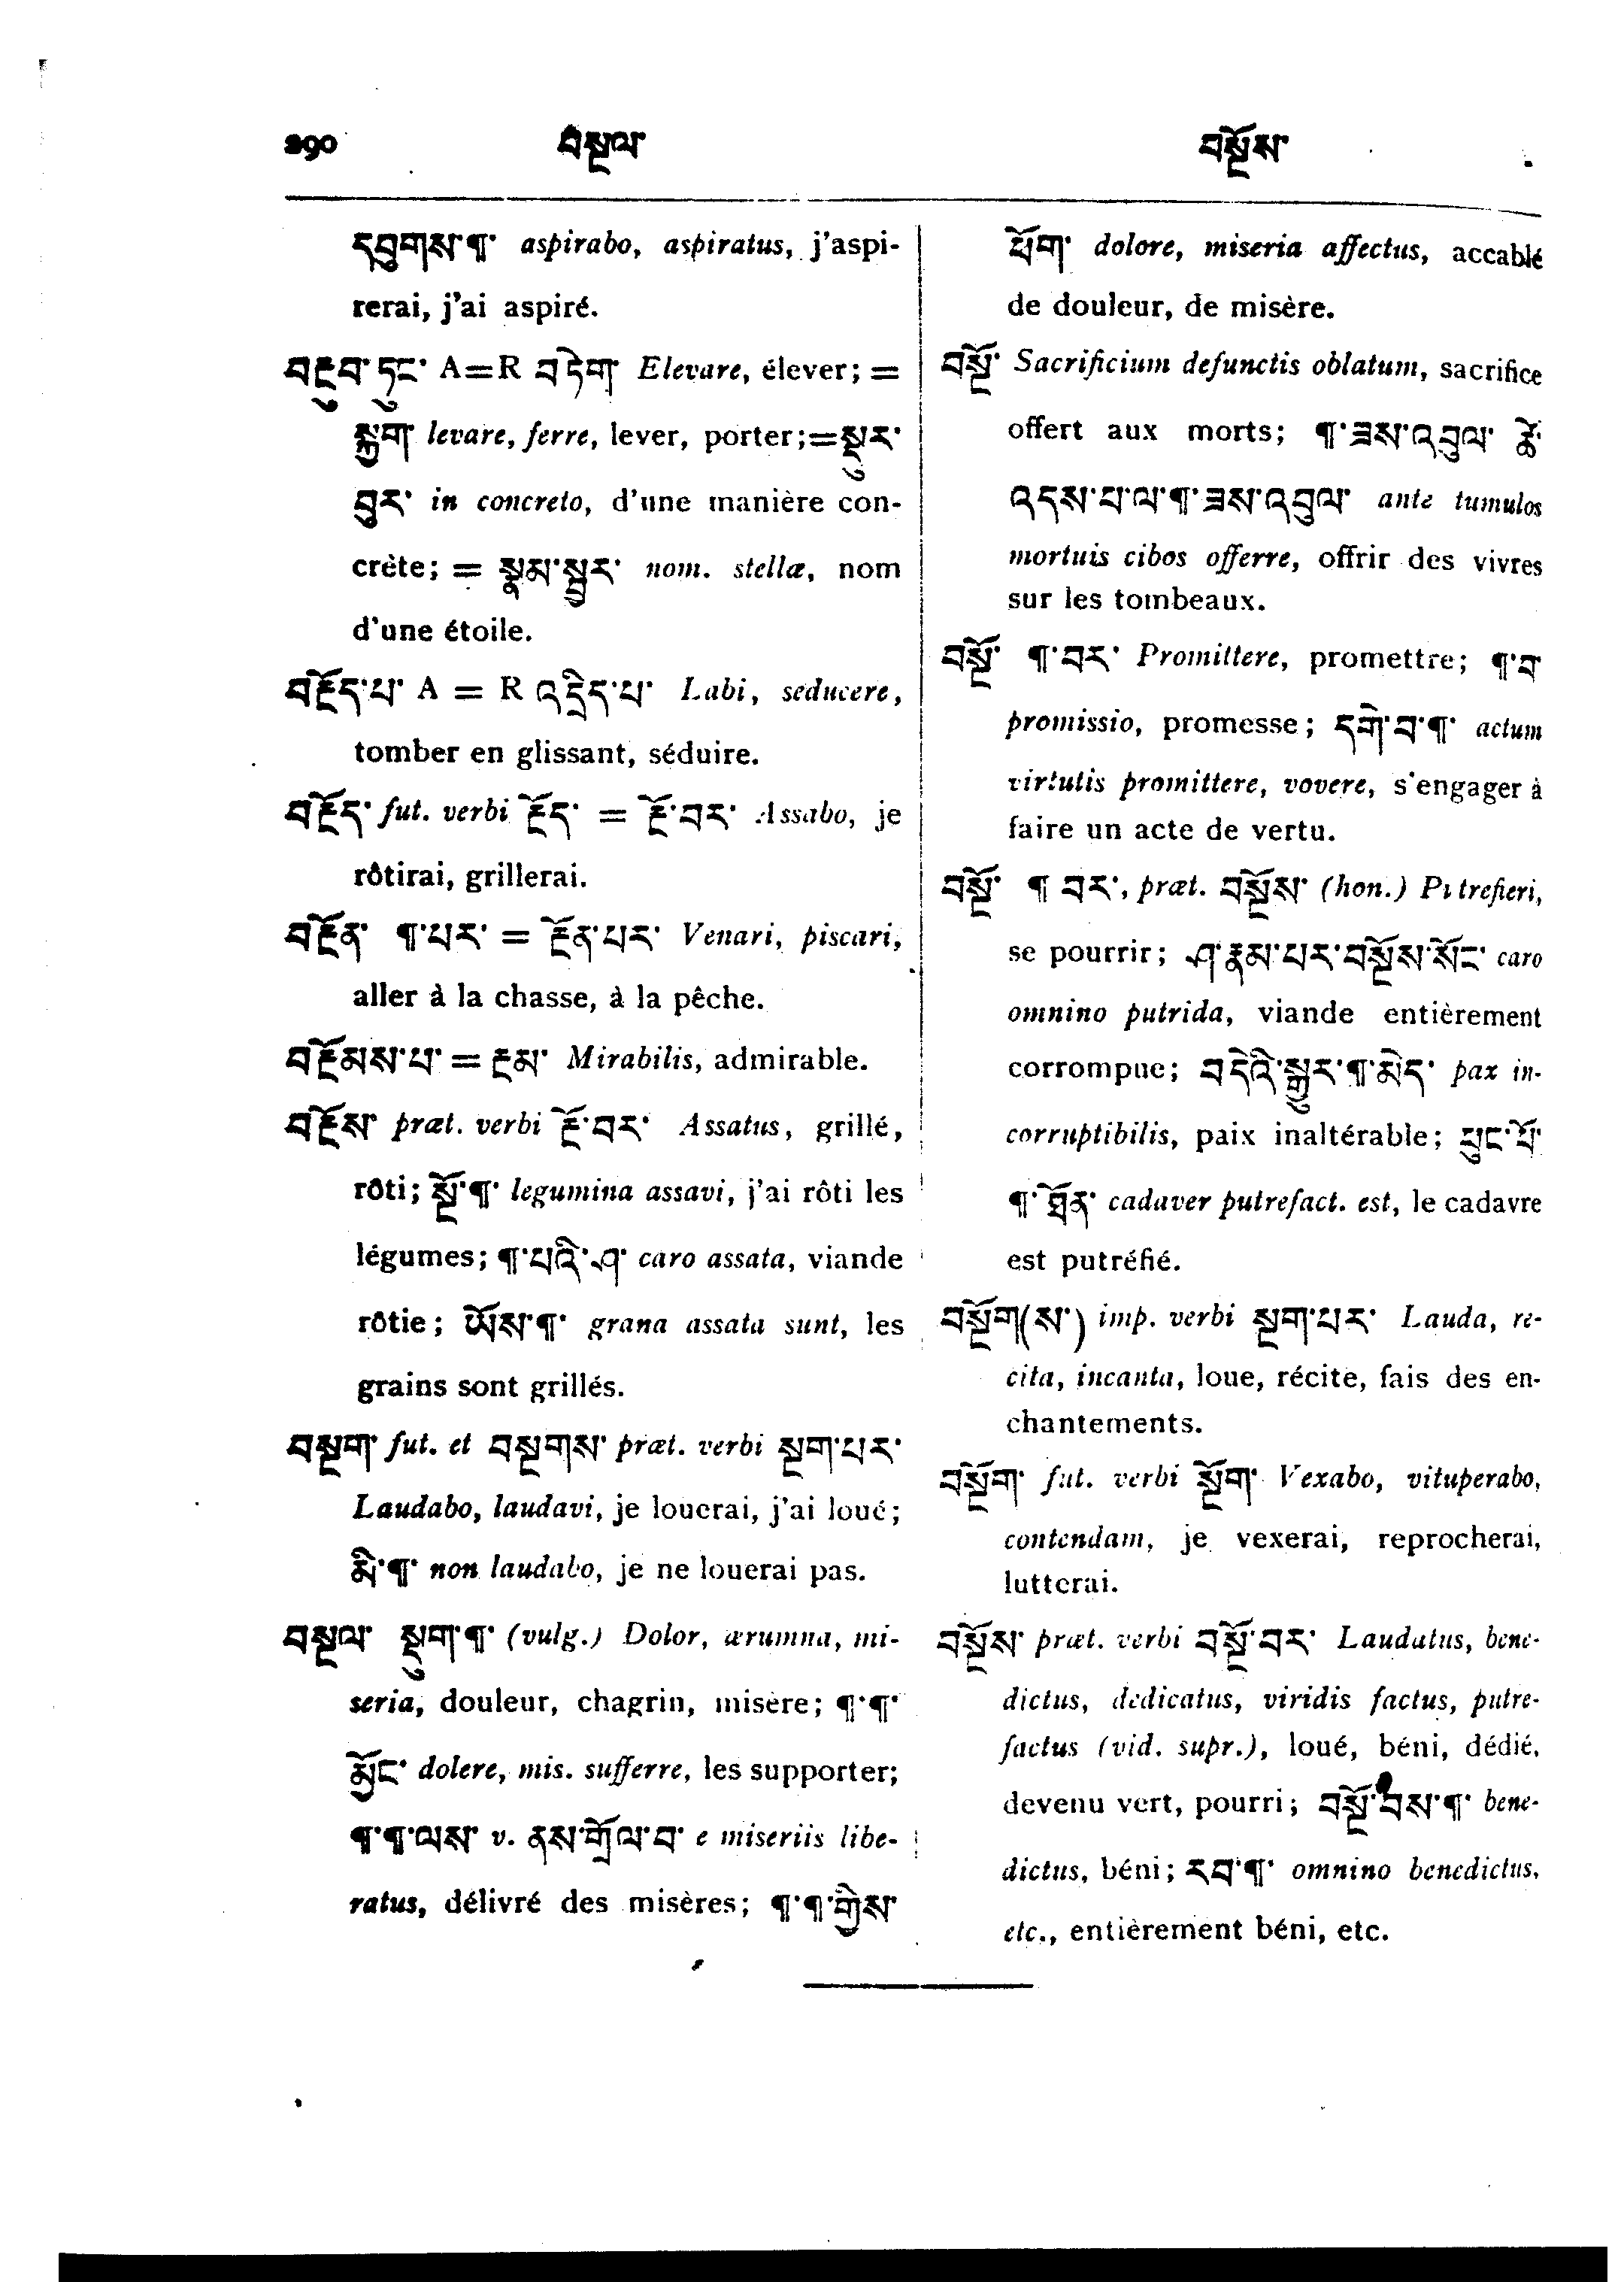 290 བསྔལ་ བསྔོས་
དབུགས་¶་ aspirabo, aspiratus, j'aspi-
rerai, j'ai aspiré.
A=R བདེག་ Elevare, élever; =
སྐྱག་ levare, ferre, lever, porter;=སྡུར་
བུར་ in concreto, d'une manière con-
crète; = nom. stellæ, nom
d'une étoile.
བརྔོད་པ་ A = R འདྲིད་པ་ Labi, seducere,
tomber en glissant, séduire.
བརྔོད་ fut. verbi རྔོད་ = རྔོ་བར་ Assabo, je
rôtirai, grillerai.
བརྔོན་ ¶་པར་ = རྔོན་པར་ Venari, piscari,
aller à la chasse, à la pêche.
བརྔོམས་པ་ = རྔམ་ Mirabilis, admirable.
བརྔོས་ præt. verbi རྔོ་བར་ Assatus, grillé,
rôti; སྔོ་¶་ legumina assavi, j'ai rôti les
légumes; ¶་པའི་ཤ་ caro assata, viande
rôtie; ཡོས་¶་ grana assata sunt, les
grains sont grillés.
བསྔག་ fut. et བསྔགས་ præt. verbi སྔག་པར་
Laudabo, laudavi, je louerai, j'ai loué;
མི་¶་ non laudabo, je ne louerai pas.
བསྔལ་ སྡུག་¶་ (vulg.) Dolor, ærumna, mi-
seria, douleur, chagrin, misère; ¶་¶་
མྱོང་ dolere, mis. sufferre, les supporter;
¶་¶་ལས་ v. ནས་གྲོལ་བ་ e miseriis libe-
ratus, délivré des misères; ¶་¶་གྱིས་
ཕོག་ dolore, miseria affectus, accablé
de douleur, de misère.
བསྔོ་ Sacrificium defunctis oblatum, sacrifice
offert aux morts; ¶་ཟས་འབུལ་ ཚེ་
འདས་པ་ལ་¶་ཟས་འབུལ་ ante tumulos
mortuis cibos offerre, offrir des vivres
sur les tombeaux.
བསྔོ་ ¶་བར་ Promittere, promettre; ¶་བ་
promissio, promesse; དགེ་བ་¶་ actum
virtutis promittere, vovere, s'engager à
faire un acte de vertu.
བསྔོ་ ¶ བར་, præt. བསྔོས་ (hon.) Putrefieri,
se pourrir; ཤ་རྣམ་པར་བསྔོས་སོང་ caro
omnino putrida, viande entièrement
corrompue; བདེའི་སྐྱུར་¶་མེད་ pax in-
corruptibilis, paix inaltérable; ཕུང་པོ་
¶་ཐོན་ cadaver putrefact. est, le cadavre
est putréfié.
བསྔོག(ས་) imp. verbi སྔག་པར་ Lauda, re-
cita, incanta, loue, récite, fais des en-
chantements.
བསྔོག་ fut. verbi སྔོག་ Vexabo, vituperabo,
contendam, je vexerai, reprocherai,
lutterai.
བསྔོས་ præt. verbi བསྔོ་བར་ Laudatus, bene-
dictus, dedicatus, viridis factus, putre-
factus (vid. supr.), loué, béni, dédié,
devenu vert, pourri; བསྔོ་བས་¶་ bene-
dictus, béni; རབ་¶་ omnino benedictus,
etc., entièrement béni, etc.